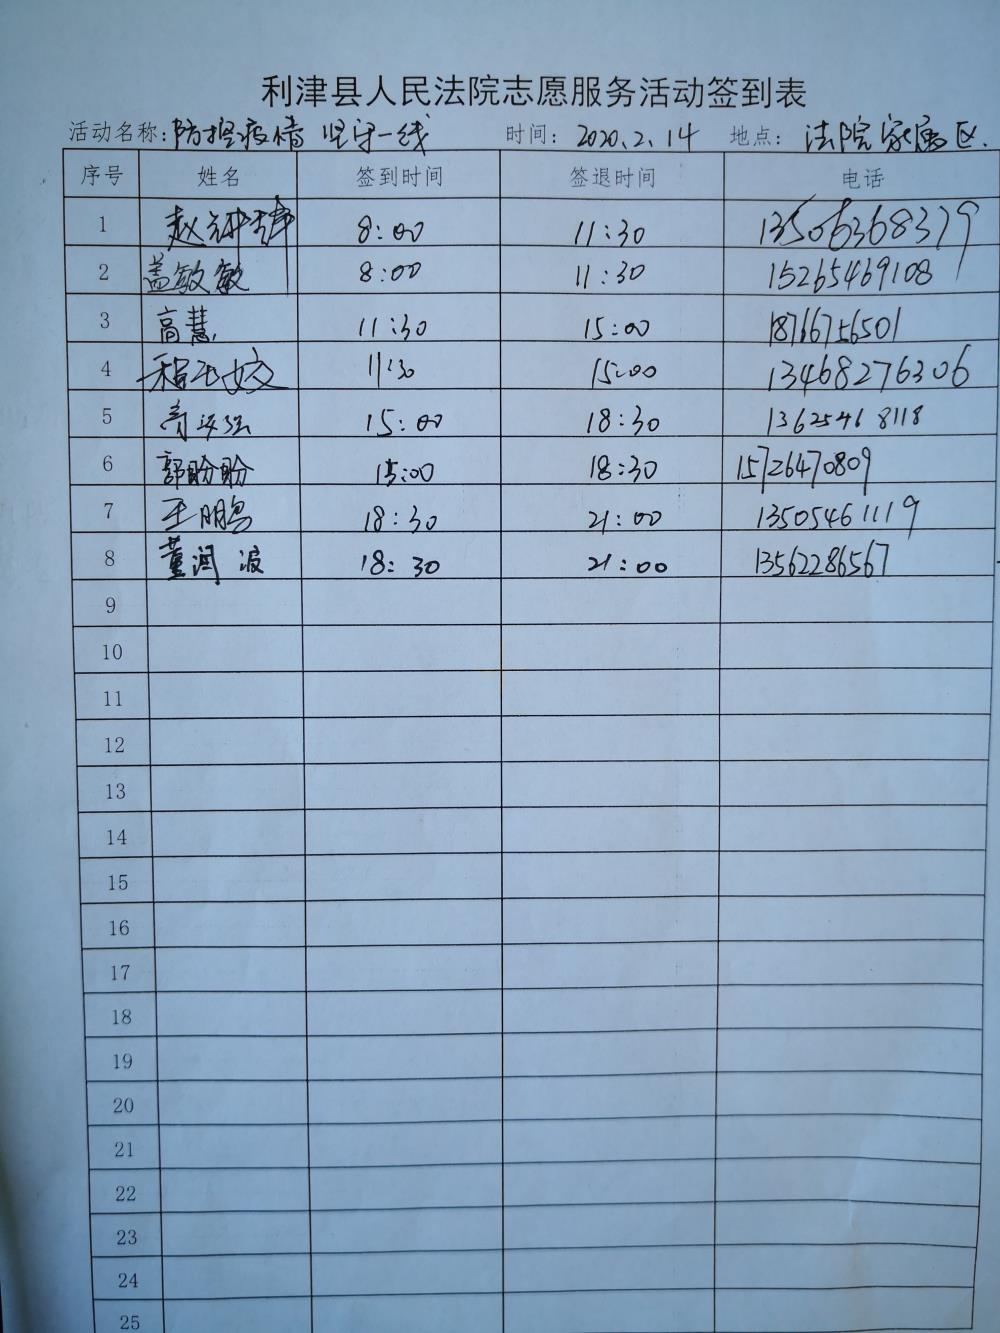 利津县人民法院志愿服务活动签到表
活动名称:防控疫情 坚守一线 时间: 2020.2.14 地点: 法院家属区.
序号 姓名 签到时间 签退时间 电话
1 赵 8:00 11:30 13506368379
2 盖敏敏 8:00 11:30 15265469108
3 高慧 11:30 15:00 18766756501
4 11:30 15:00 13468276306
5 15:00 18:30 13625468118
6 郭盼盼 15:00 18:30 15726470809
7 王鹏 18:30 21:00 13505461119
8 董润波 18:30 21:00 13562286567
9
10
11
12
13
14
15
16
17
18
19
20
21
22
23
24
25